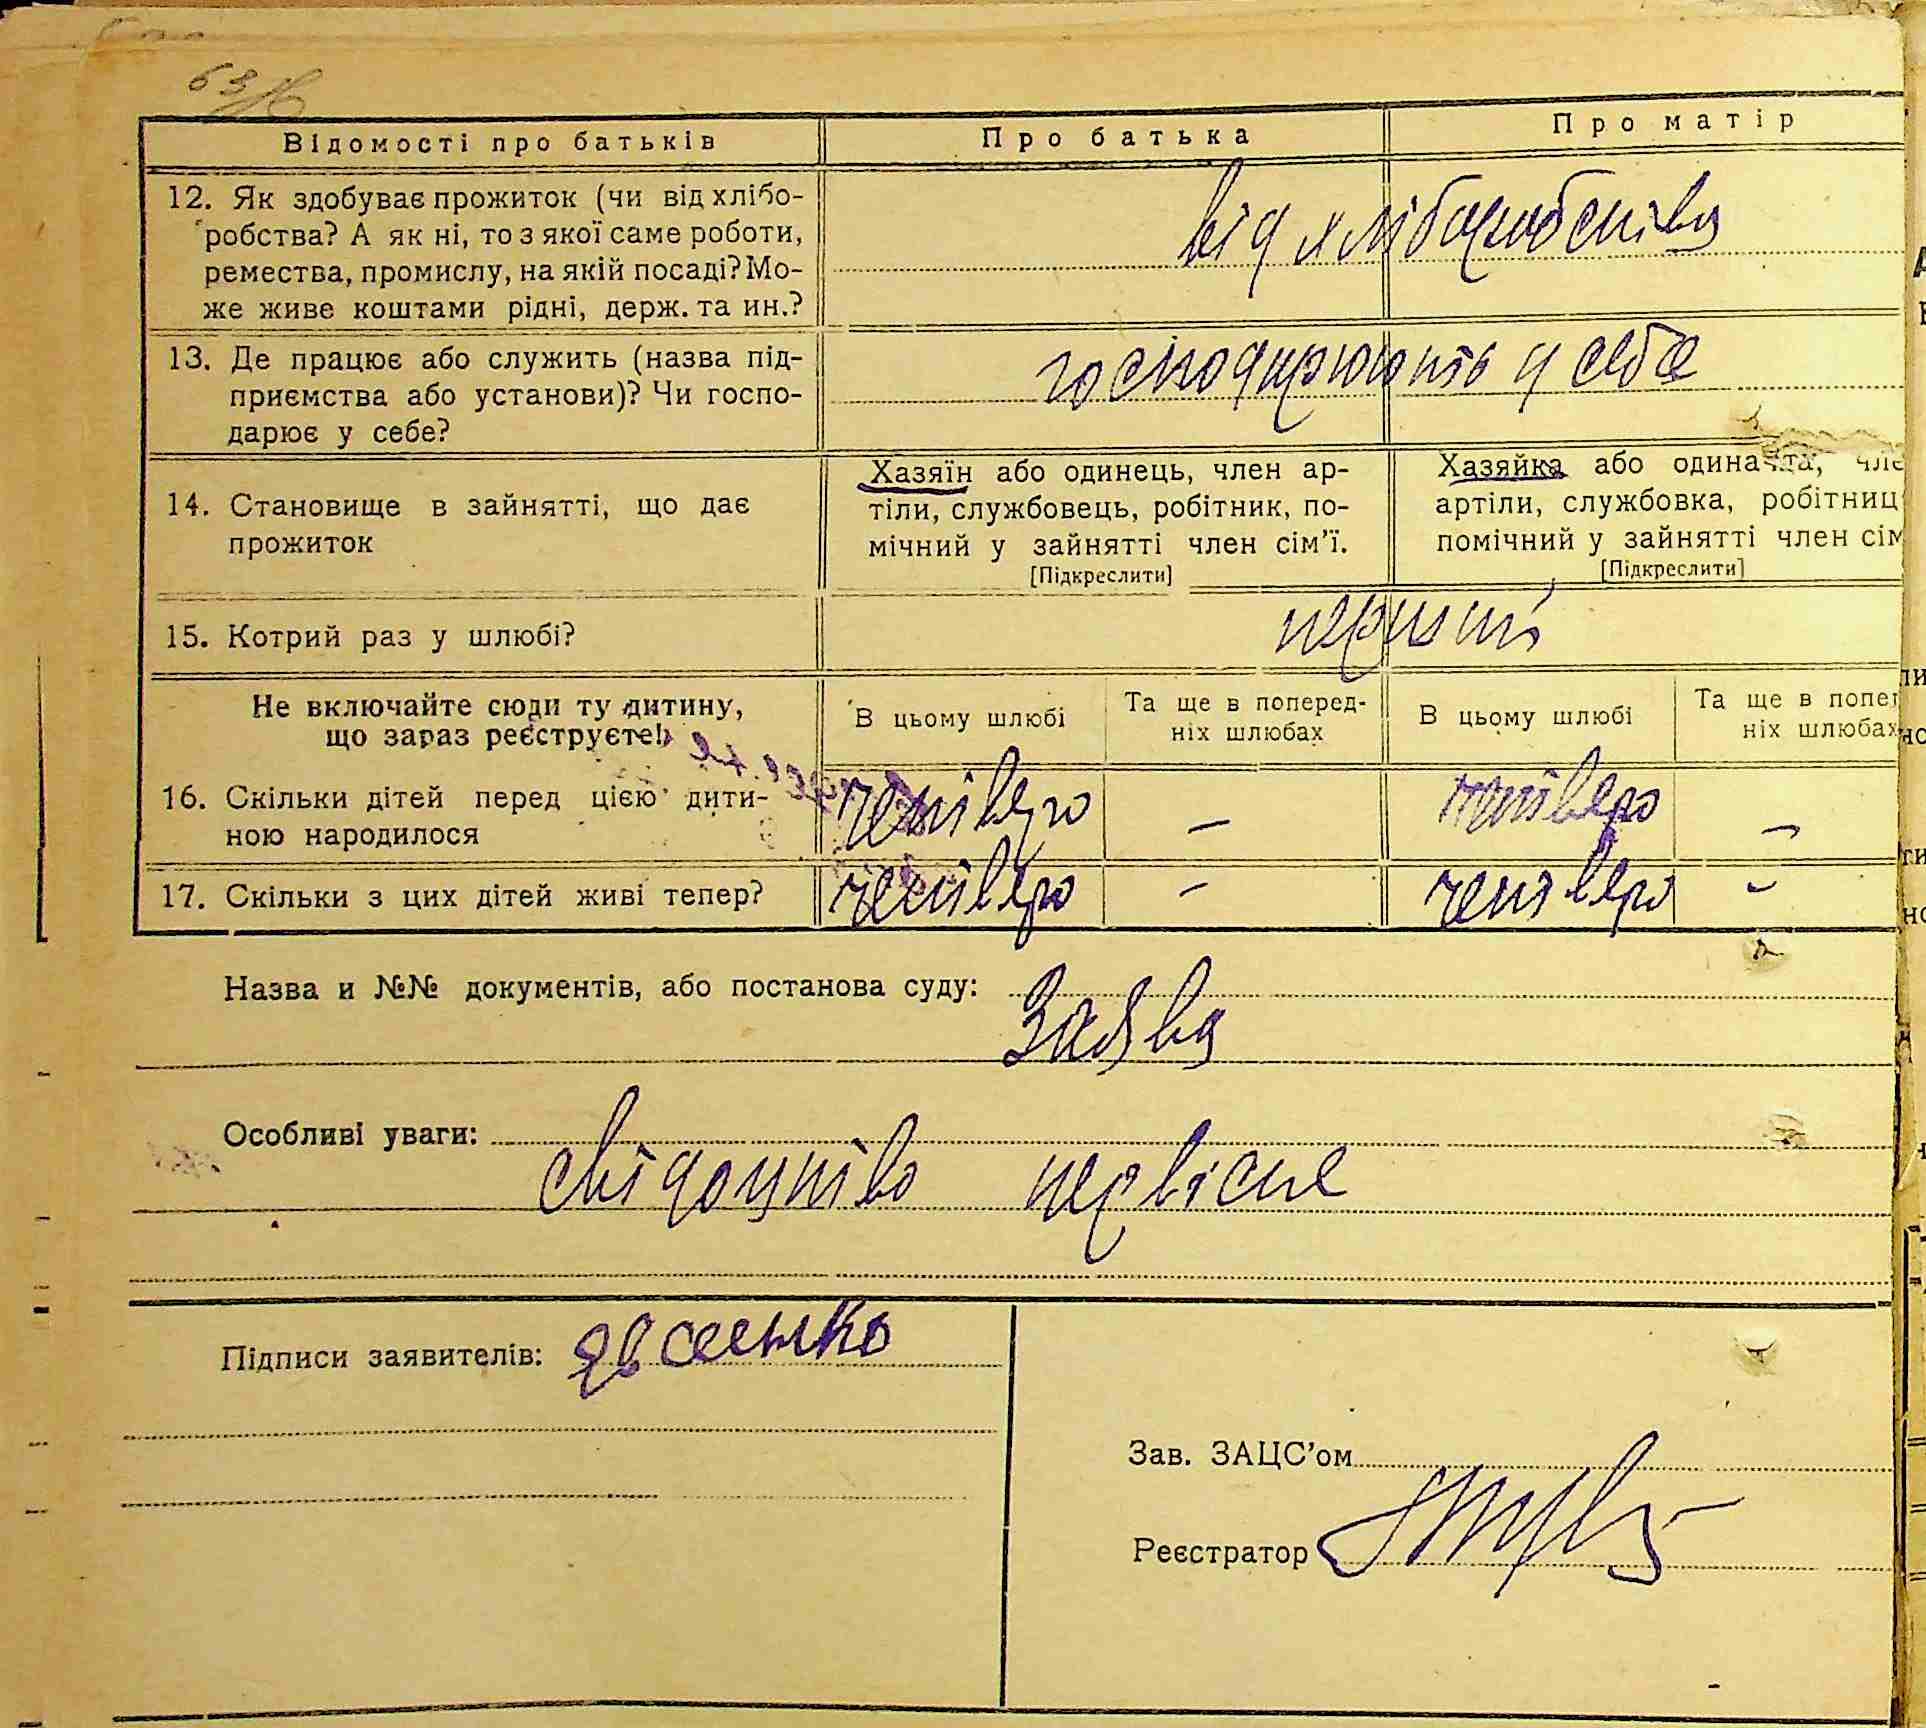 63
Відомості про батьків Про батька Про матір
12. Як здобуває прожиток (чи від хлібо-
робства? А як ні, то з якої саме роботи,
ремества, промислу, на якій посаді? Мо-
же живе коштами рідні, держ. та ин.?
від хліборобства
13. Де працює або служить (назва під-
приємства або установи)? Чи госпо-
дарює у себе?
господарюють у себе
14. Становище в зайнятті, що дає
прожиток
Хазяїн або одинець, член ар-
тіли, службовець, робітник, по-
мічний у зайнятті член сім'ї.
[Підкреслити]
Хазяйка або одиначка, чле
артіли, службовка, робітниц
помічний у зайнятті член сім
[Підкреслити]
15. Котрий раз у шлюбі?
перший
Не включайте сюди ту дитину,
що зараз реєструєте!
В цьому шлюбі
Та ще в поперед-
ніх шлюбах
В цьому шлюбі
Та ще в попер
ніх шлюбах
16. Скільки дітей перед цією дити-
ною народилося
четверо – четверо –
17. Скільки з цих дітей живі тепер?
четверо – четверо –
Назва и №№ документів, або постанова суду:
Заява
Особливі уваги:
свідоцтво первісне
Підписи заявителів: Явсенко
Зав. ЗАЦС'ом
Реєстратор